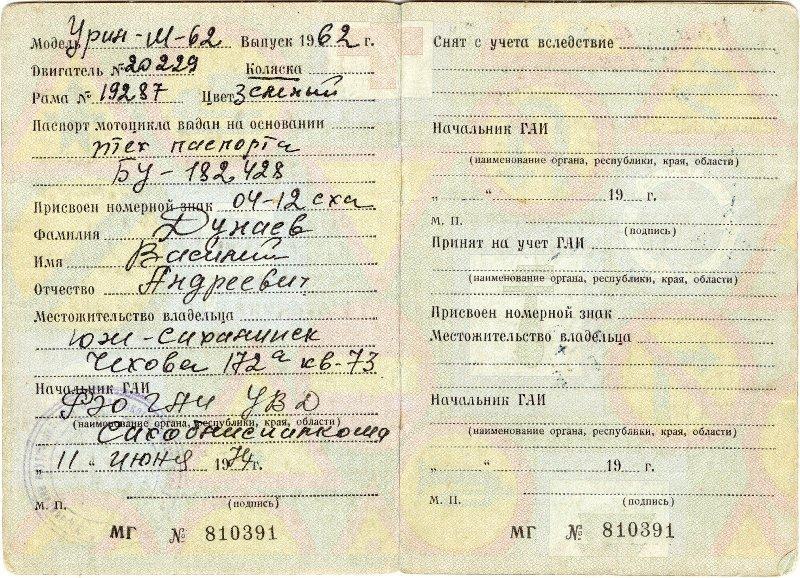 Модель Урал-М-62 Выпуск 1962 г.
Двигатель № 20229 Коляска
Рама № 19287 Цвет Зеленый
Паспорт мотоцикла выдан на основании
тех паспорта
БУ-182428
Присвоен номерной знак 04-12 сха
Фамилия Дунаев
Имя Василий
Отчество Андреевич
Местожительство владельца
Юж-Сахалинск
Чехова 172а кв-73
Начальник ГАИ
РЭО ГАИ УВД
(наименование органа, республики, края, области)
Сахоблисполкома
„ 11 “ июня 1974 г.
М. П. (подпись)
МГ № 810391
Снят с учета вследствие
Начальник ГАИ
(наименование органа, республики, края, области)
„ “ 19 г.
М. П. (подпись)
Принят на учет ГАИ
(наименование органа, республики, края, области)
Присвоен номерной знак
Местожительство владельца
Начальник ГАИ
(наименование органа, республики, края, области)
„ “ 19 г.
М. П. (подпись)
МГ № 810391